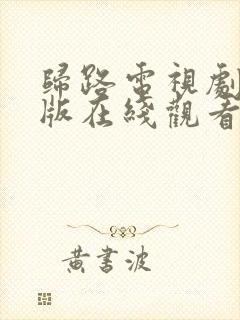 歸路電視劇
版在綫觀看
黃書波